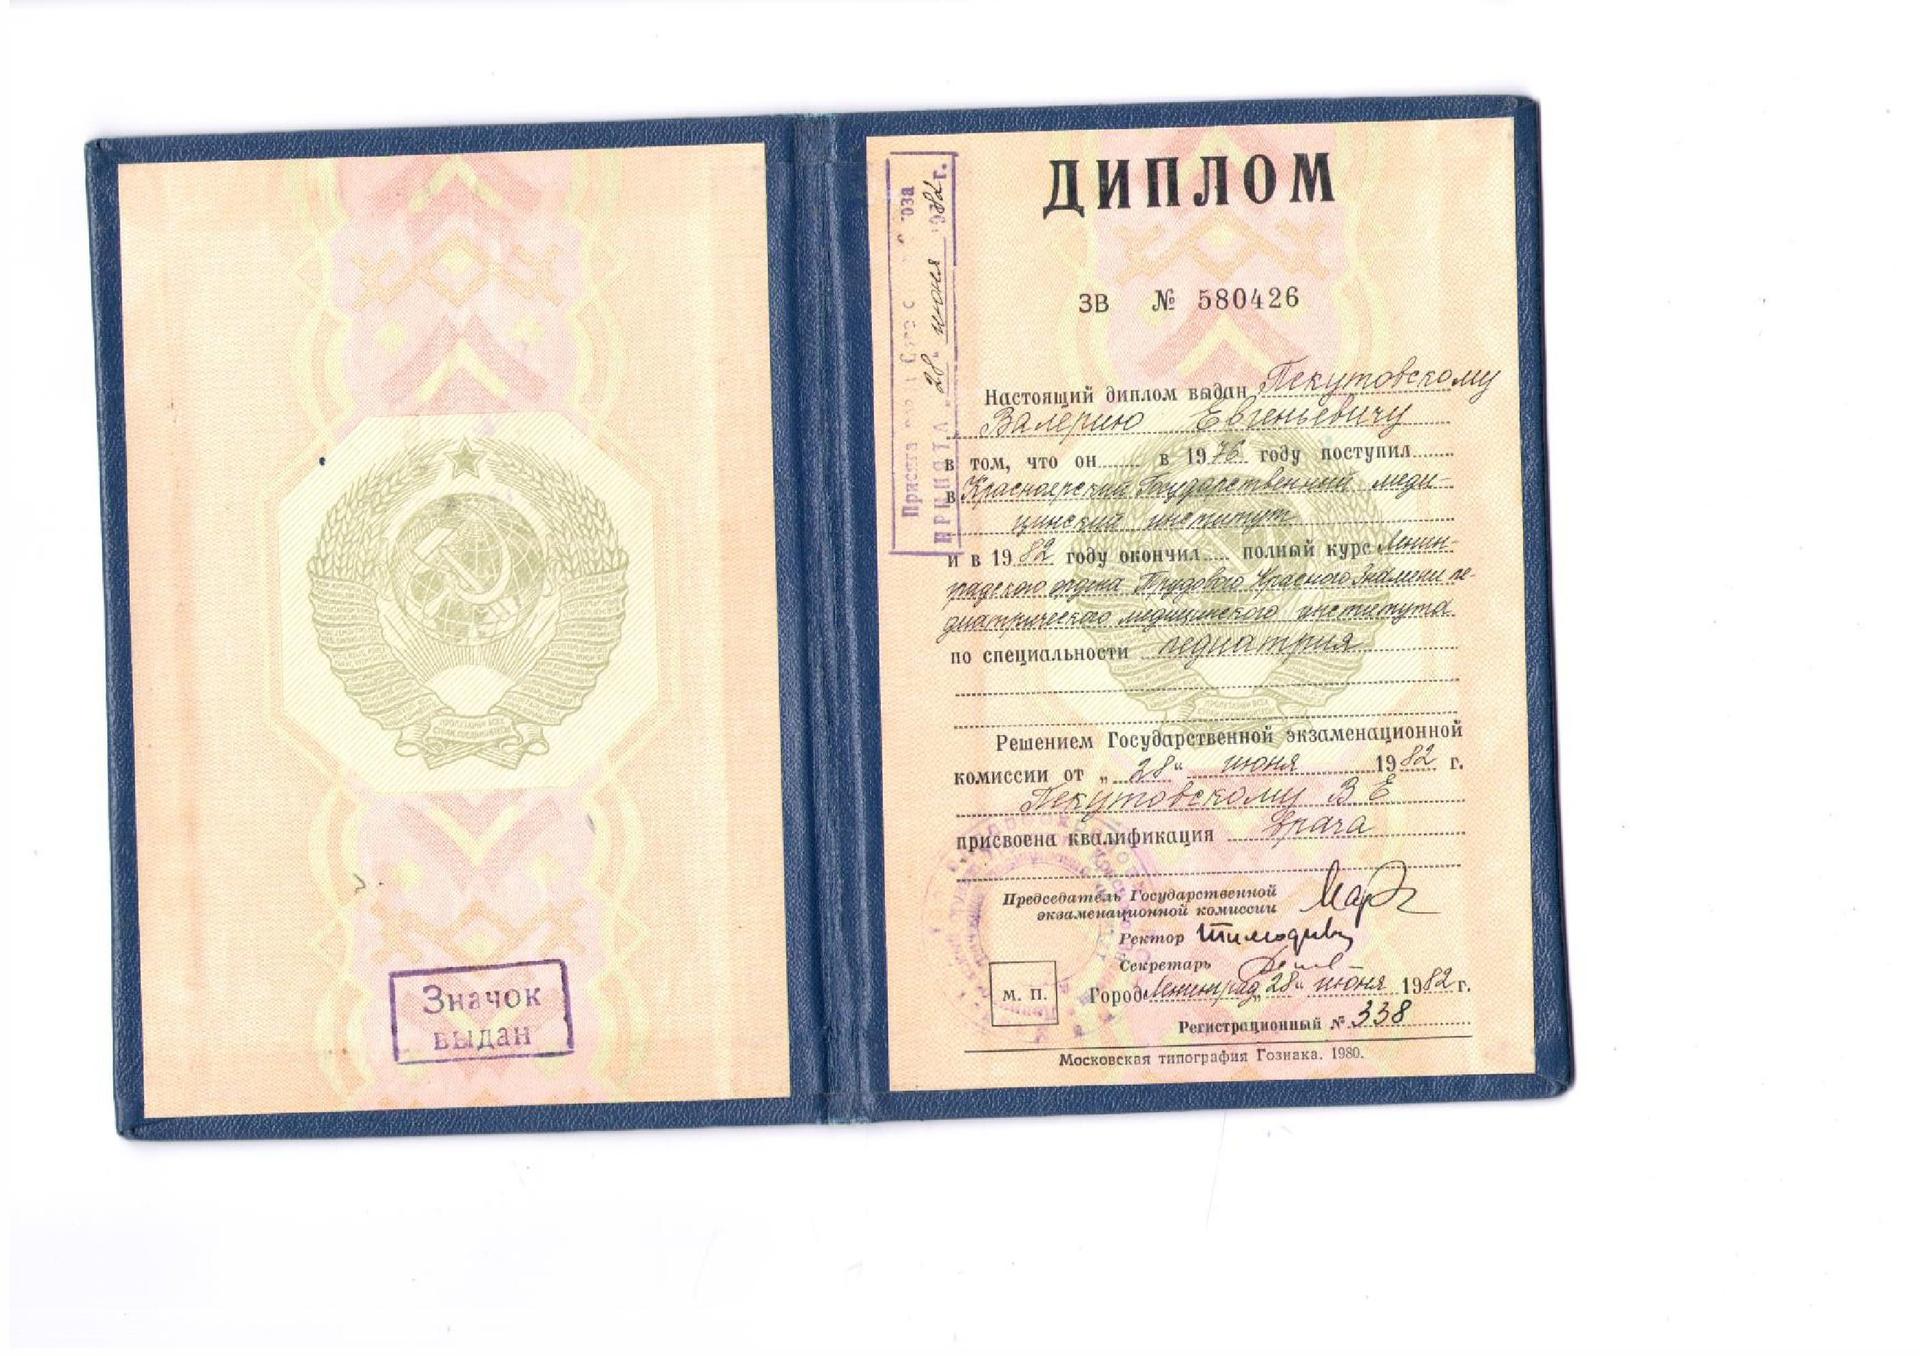 Значок
выдан
ПРОЛЕТАРИИ ВСЕХ
СТРАН, СОЕДИНЯЙТЕСЬ!
ДИПЛОМ
ЗВ № 580426
Присяга
ПРИНЯТА „28" июня 1982 г.
Настоящий диплом выдан Пекутовскому
Валерию Евгеньевичу
в том, что он в 1976 году поступил
в Красноярский Государственный меди-
цинский институт
и в 1982 году окончил полный курс Ленин-
градского ордена Трудового Красного Знамени пе-
диатрического медицинского института
по специальности педиатрия
Решением Государственной экзаменационной
комиссии от „28" июня 1982 г.
Пекутовскому В Е
присвоена квалификация врача
Председатель Государственной
экзаменационной комиссии
Ректор
Секретарь
М. П.
Город Ленинград „28" июня 1982 г.
Регистрационный № 338
Московская типография Гознака. 1980.